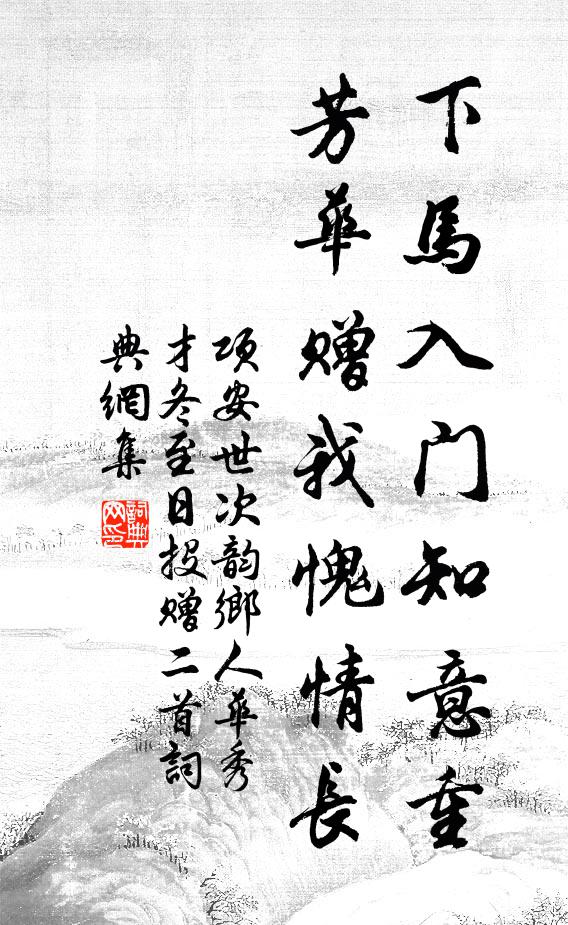 下馬入门知意重
芳華贈我愧情長
项安世次韵鄉人華秀
才冬至日投赠二首詞
典網集
詞典网印